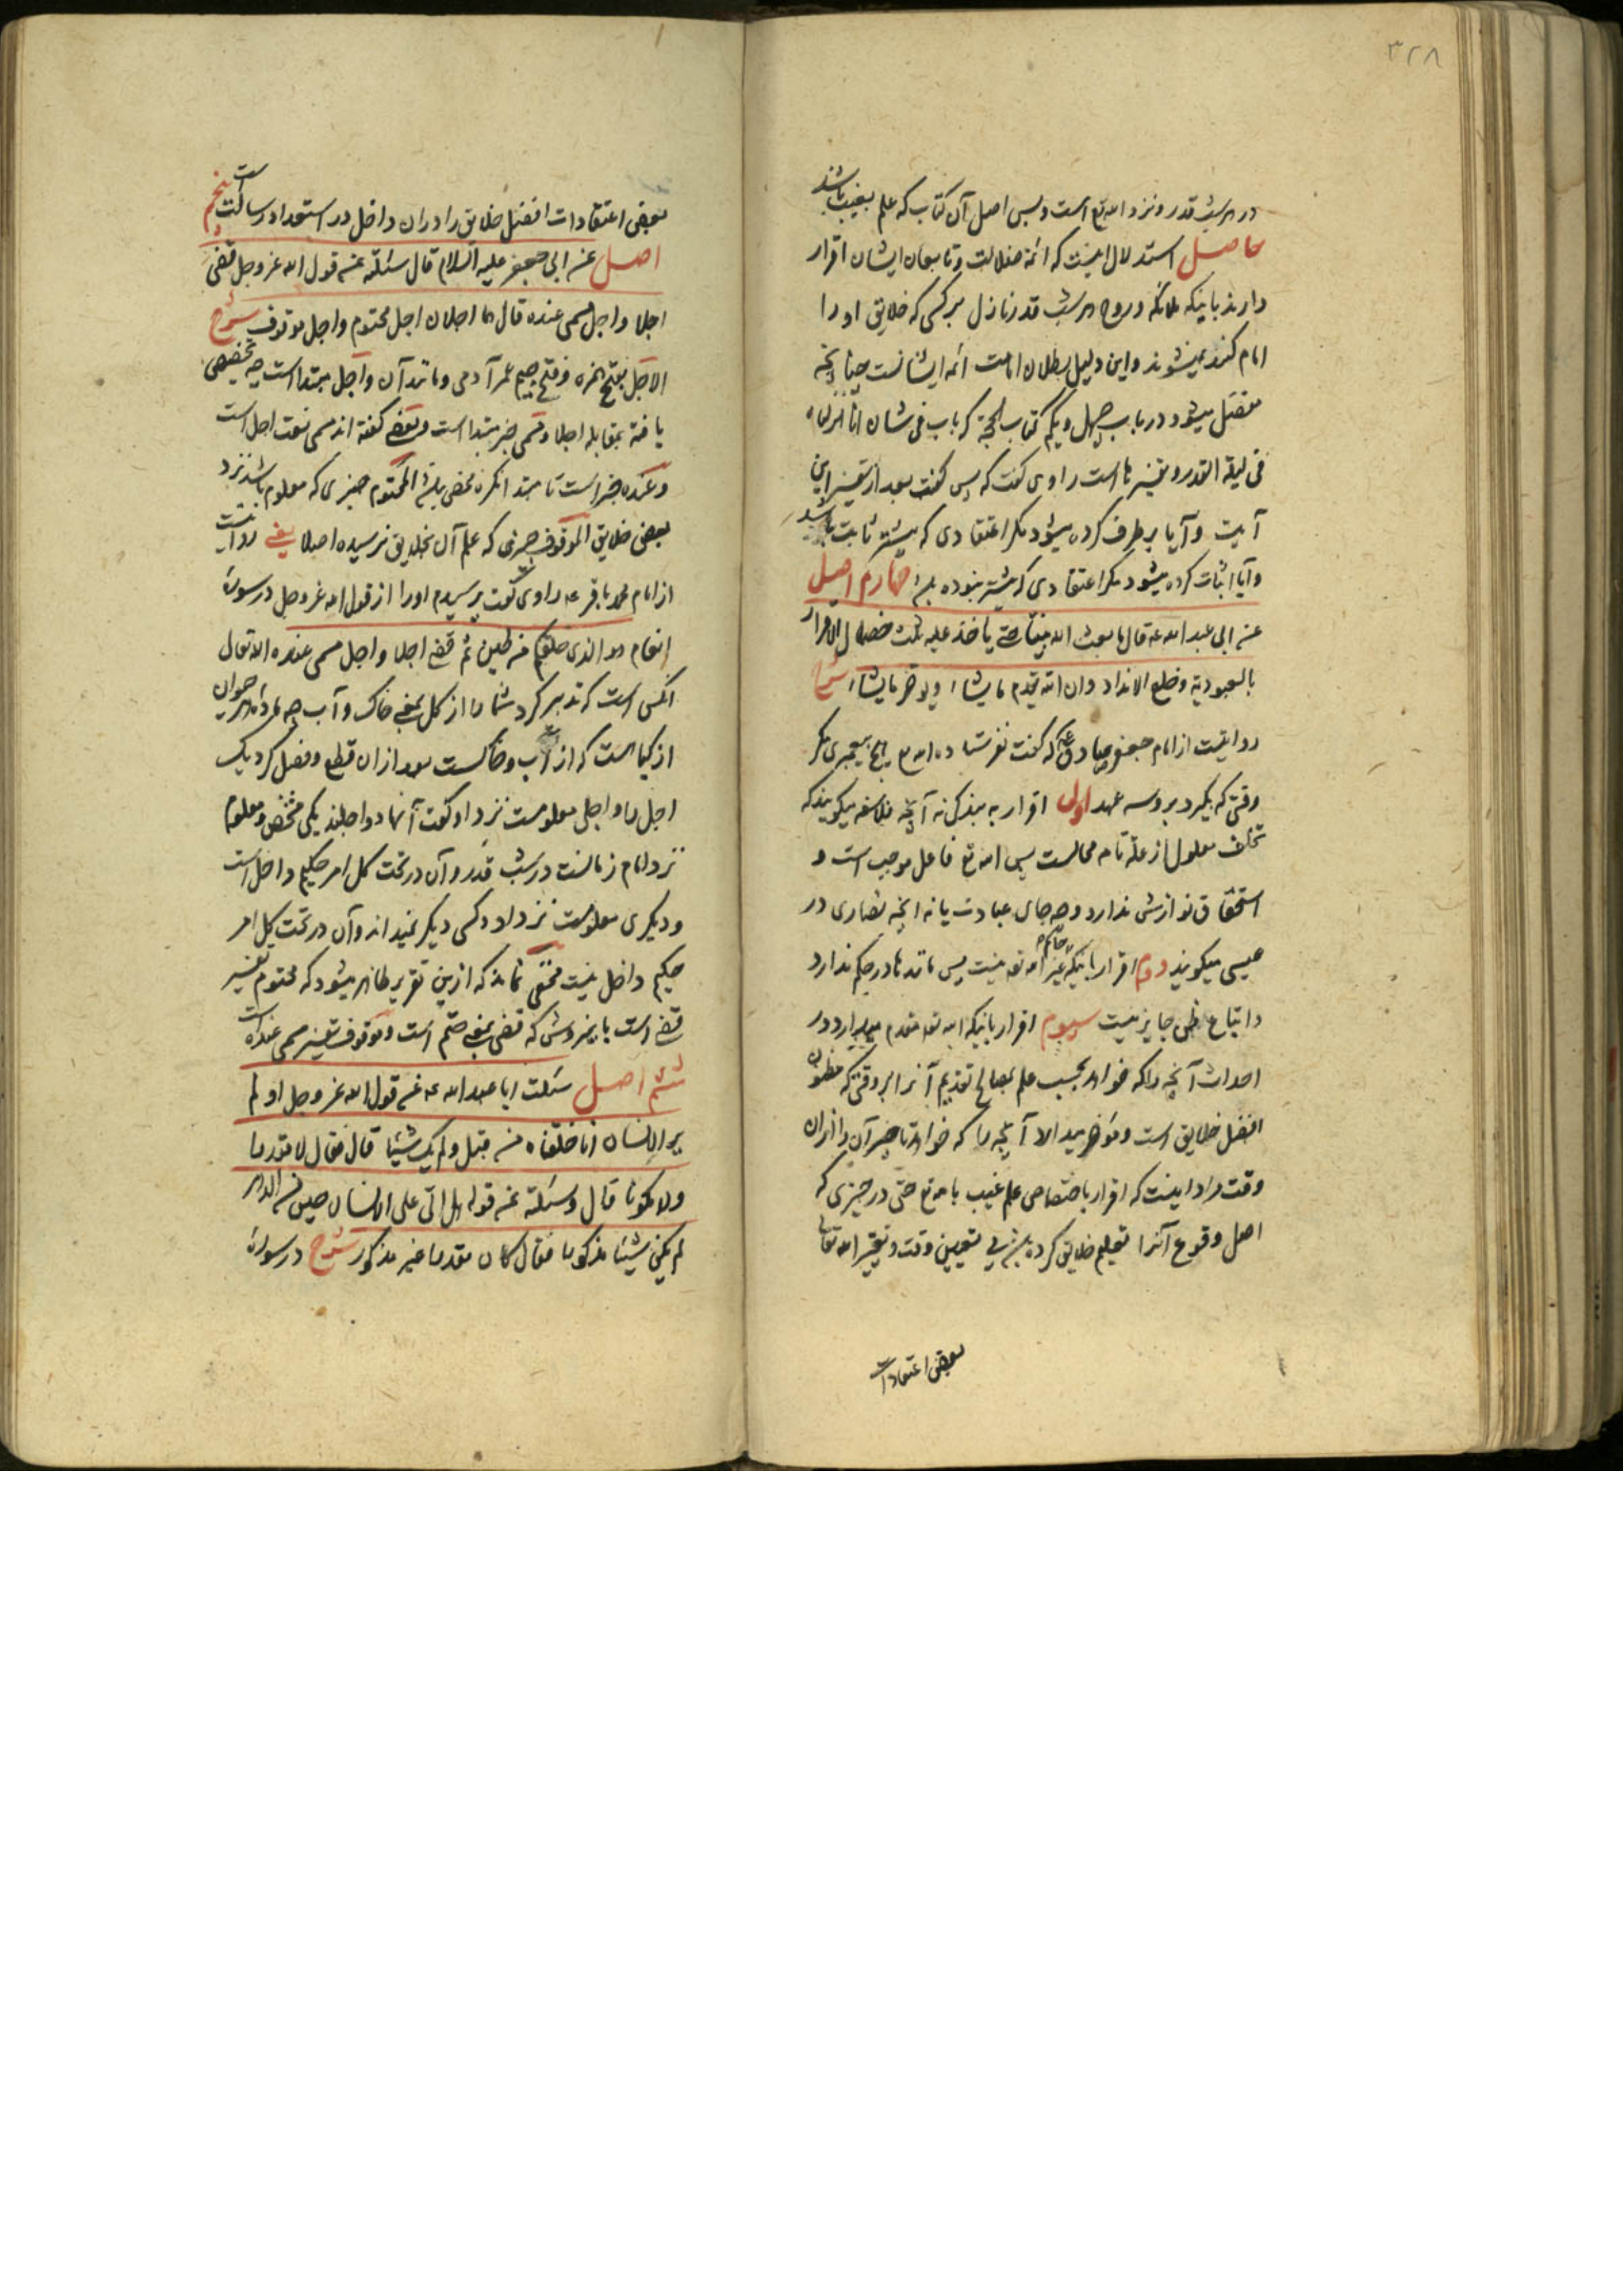 ۳۲۸
در هر شب قدر و نزد الله تع است و بس اصل آن کتاب که علم بغیب باشد
حاصل استدلال اینست که ائمه ضلالت و تابعان ایشان اقرار
دارند باینکه ملائکه و روح هر شب قدر نازل بر کسی که خلایق او را
امام کنند نمیشوند و این دلیل بطلان امامت ائمه ایشانست چنانچه
مفصل میشود در باب چهل و یکم کتاب الحجة که باب فی شان انا انزلناه
فی لیلة القدر و تفسیرها است راوی گفت که پس گفت بعد از تفسیر این
آیت و آیا برطرف کرده میشود مگر اعتقادی که پیشتر ثابت باشد
و آیا اثبات کرده میشود مگر اعتقادی که پیشتر نبوده چهارم اصل
عن ابی عبد الله عه قال ما بعث الله نبیا حتی یاخذ علیه ثلث خصال الاقرار
بالعبودیة و خلع الانداد و ان الله یقدم ما یشاء و یوخر ما یشاء شرح
روایتست از امام جعفر صادق عه که گفت نفرستاده الله تع هیچ پیغمبری مگر
وقتی که بگیرد برو سه عهد اول اقرار به بندگی نه آنچه فلاسفه میگویند که
تخلف معلول از علة تامه محالست پس الله تع فاعل موجب است و
استحقاق نوازش ندارد و چه جای عبادت یا نه آنچه نصاری در
عیسی میگویند دوم اقرار باینکه غیر الله تعه حاکم نیست پس مانند ها در حکم ندارد
و اتباع ظن جایز نیست سیوم اقرار باینکه الله تعه مقدم میدارد در
احداث آنچه را که خواهد بحسب علم بمصالح تقدیم آنرا بر وقتی که مظنون
افضل خلایق است و مؤخر میدارد آنچه را که خواهد تاخیر آن را از ان
وقت مراد اینست که اقرار باختصاص علم غیب بالله تع حتی در چیزی که
اصل وقوع آنرا تعلیم خلایق کرده بی تعیین وقت و تغییر الله تعالی
بعضی اعتقادات
بعضی اعتقادات افضل خلایق را در ان داخل در استعداد رسالتست پنجم
اصل عن ابی جعفر علیه السلام قال سئلته عن قول الله عز و جل قضی
اجلا و اجل مسمی عنده قال هما اجلان اجل محتوم و اجل موقوف شرح
الاجل بفتح همزه و فتح جیم عمر آدمی و مانند آن و اجل مبتدا است چه تخصیص
یافته بمقابله اجلا و مسمی خبر مبتدا است و بعضی گفته اند مسمی نعت اجل است
و عنده خبر است تا مبتدا نکره مخصص باشد المحتوم چیزی که معلوم باشد نزد
بعضی خلایق الموقوف چیزی که علم آن بخلایق نرسیده اصلا یعنی روایتست
از امام محمد باقر عه راوی گفت پرسیدم او را از قول الله عز و جل در سورهٔ
انعام هو الذی خلقکم من طین ثم قضی اجلا و اجل مسمی عنده الله تعالی
آنکس است که تدبیر کرد شما را از گل یعنی خاک و آب چه غذای هر حیوان
از گیاه است که از آب و خاکست بعد از ان قطع و فصل کرد یک
اجل را و اجلی معلومست نزد او گفت آنها دو اجلند یکی مشخص و معلوم
نزد امام زمانست در شب قدر و آن در تحت کل امر حکیم داخل است
و دیگری معلومست نزد او و کسی دیگر نمیداند و آن در تحت کل امر
حکیم داخل نیست مخفی نماند که ازین تقریر ظاهر میشود که محتوم تفسیر
قضی است باین روش که قضی بمعنی حتم است و موقوف تفسیر مسمی عنده است
ششم اصل سئلت ابا عبد الله عه عن قول الله عز و جل او لم
یر الانسان انا خلقناه من قبل و لم یک شیئا قال فقال لا مقدرا
و لا مکونا قال و سئلته عن قوله هل اتی علی الانسان حین من الدهر
لم یکن شیئا مذکورا فقال کان مقدرا غیر مذکور شرح در سورهٔ